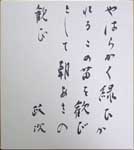 やはらかく緑ひか
れるこの苗を歓び
として朝あさの
歓び
政次